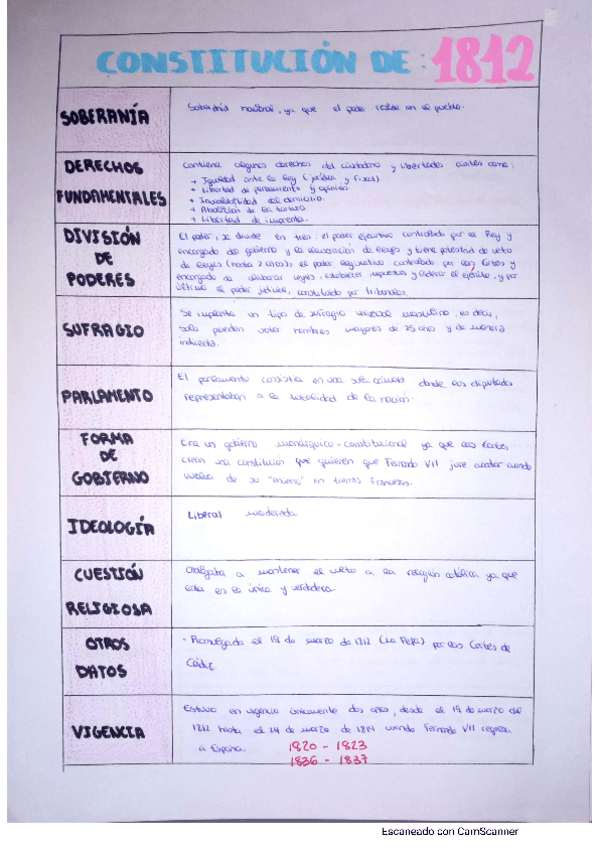 CONSTITUCIÓN DE: 1812
SOBERANÍA
Soberanía nacional, ya que el poder reside en el pueblo.
DERECHOS
FUNDAMENTALES
Contiene algunos derechos del ciudadano y libertades civiles como:
+ Igualdad ante la ley (jurídica y fiscal).
+ Libertad de pensamiento y opinión
+ Inviolabilidad del domicilio.
+ Abolición de la tortura
+ Libertad de imprenta.
DIVISIÓN
DE
PODERES
El poder, se divide en tres: el poder ejecutivo controlado por el Rey y
encargado del gobierno y la elaboración de leyes y tiene potestad de veto
de leyes (hasta 2 años); el poder legislativo controlado por las Cortes y
encargado de elaborar leyes, establecer impuestos y liderar el ejército, y por
último el poder judicial, constituido por tribunales.
SUFRAGIO
Se implanta un tipo de sufragio universal masculino, es decir,
solo pueden votar hombres mayores de 25 años y de manera
indirecta.
PARLAMENTO
El parlamento consistía en una sola cámara donde los diputados
representaban a la totalidad de la nación.
FORMA
DE
GOBIERNO
Era un gobierno monárquico-constitucional ya que las Cortes
crean una constitución que quieren que Fernando VII jure acatar cuando
vuelva de su " " en tierras francesas.
IDEOLOGÍA
Liberal moderada.
CUESTIÓN
RELIGIOSA
Obligaba a mantener el culto a la religión católica ya que
esta es la única y verdadera.
OTROS
DATOS
- Promulgada el 19 de marzo de 1812 (La Pepa) por las Cortes de
Cádiz.
VIGENCIA
Estuvo en vigencia únicamente dos años, desde el 19 de marzo del
1812 hasta el 24 de marzo de 1814 cuando Fernando VII regresa
a España.
1820 - 1823
1836 - 1837
Escaneado con CamScanner